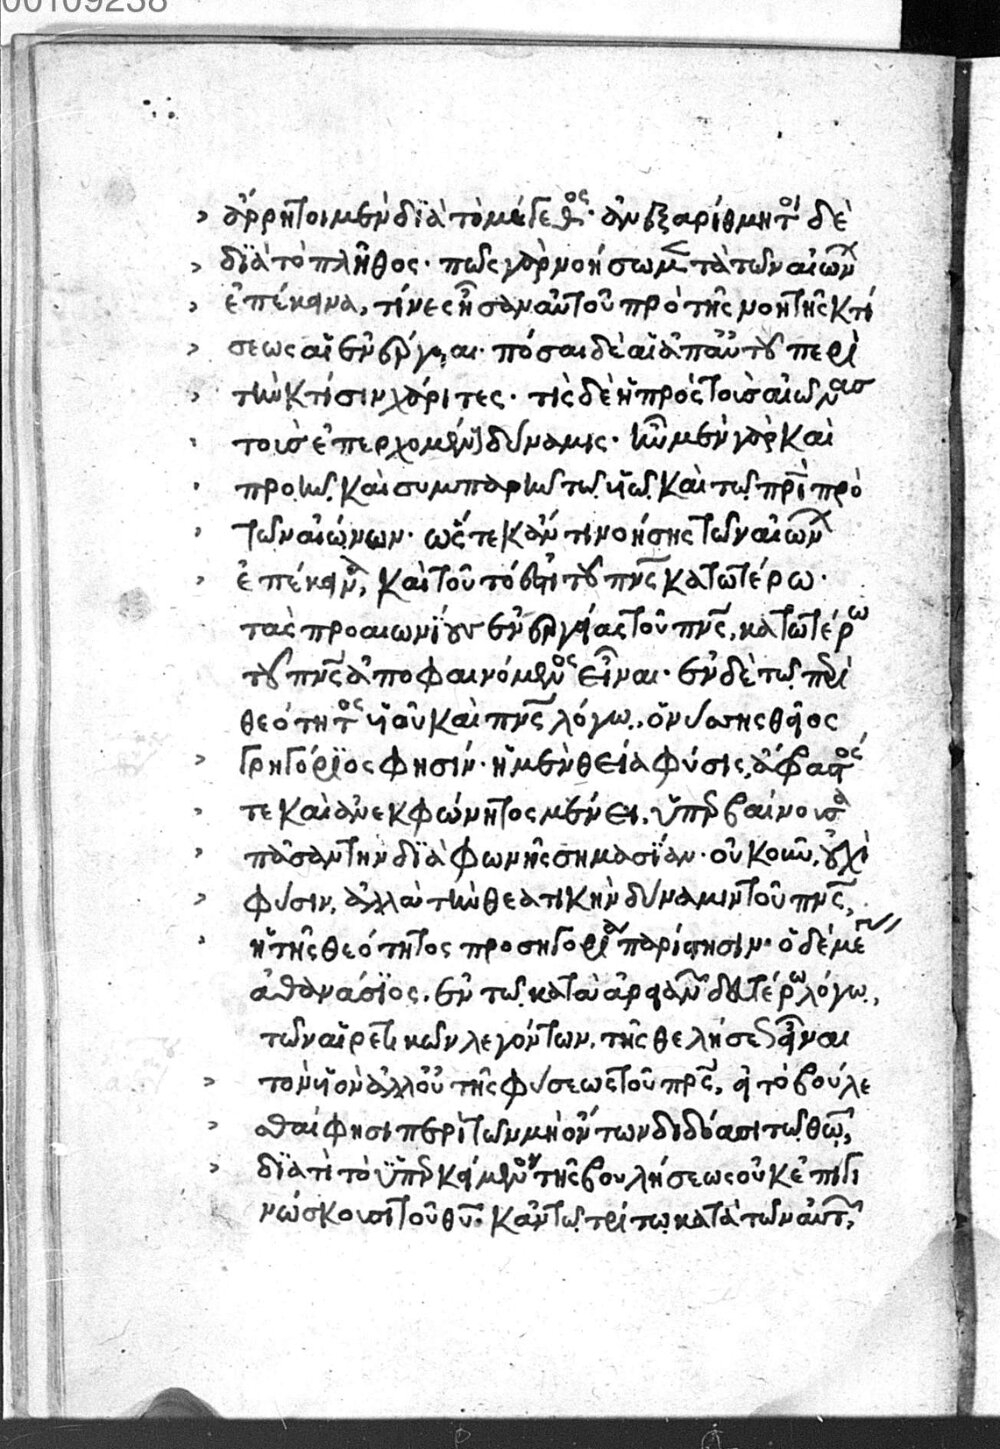 00109238
ἄρρητοι μὲν διὰ τὸ μέγεθος· ἀνεξαρίθμητοι δὲ
διὰ τὸ πλῆθος· πῶς γὰρ νοήσωμεν τὰ τῶν αἰώνων
ἐπέκεινα, τίνες ἦσαν αὐτοῦ πρὸ τῆς νοητῆς κτί
σεως αἱ ἐνέργειαι· πόσαι δὲ αἱ ἀπ' αὐτοῦ περὶ
τὴν κτίσιν χάριτες· τίς δὲ ἡ πρὸς τοὺς αἰῶνας
τοὺς ἐπερχομένους δύναμις· ἦν μὲν γὰρ καὶ
προῆν καὶ συμπαρῆν τῶ υἱῶ καὶ τῶ πρὶ πρὸ
τῶν αἰώνων· ὥστε κἄν τι νοήσῃς τῶν αἰώνων
ἐπέκεινα, καὶ τοῦτό ἐστι τοῦ πνς κατωτέρω·
τὰς προαιωνίους ἐνεργείας τοῦ πνς, κατωτέρω
τοῦ πνς ἀποφαινόμενος εἶναι· ἐν δὲ τῶ περὶ
θεότητος υἱοῦ καὶ πνς λόγω, ὁ νύσσης θεῖος
Γρηγόριος φησίν· ἡ μὲν θεία φύσις, ἄφραστός
τε καὶ ἀνεκφώνητος μένει, ὑπερβαίνουσα
πᾶσαν τὴν διὰ φωνῆς σημασίαν· οὐκοῦν, οὐχὶ
φύσιν, ἀλλὰ τὴν θεατικὴν δύναμιν τοῦ πνς,
ἡ τῆς θεότητος προσηγορία παρίστησιν· ὁ δὲ μέγας
ἀθανάσιος, ἐν τῶ κατὰ ἀρειανῶν δευτέρω λόγω,
τῶν αἱρετικῶν λεγόντων, τῆς θελήσεως εἶναι
τὸν υἱὸν ἀλλ' οὐ τῆς φύσεως τοῦ πρς, εἰ τὸ βούλε
σθαί φησι περὶ τῶν μὴ ὄντων διδόασι τῶ θῶ,
διατὶ τὸ ὑπερκείμενον τῆς βουλήσεως οὐκ ἐπιγι
νώσκουσι τοῦ θυ· κἂν τῶ τρίτω κατὰ τῶν αὐτῶν,